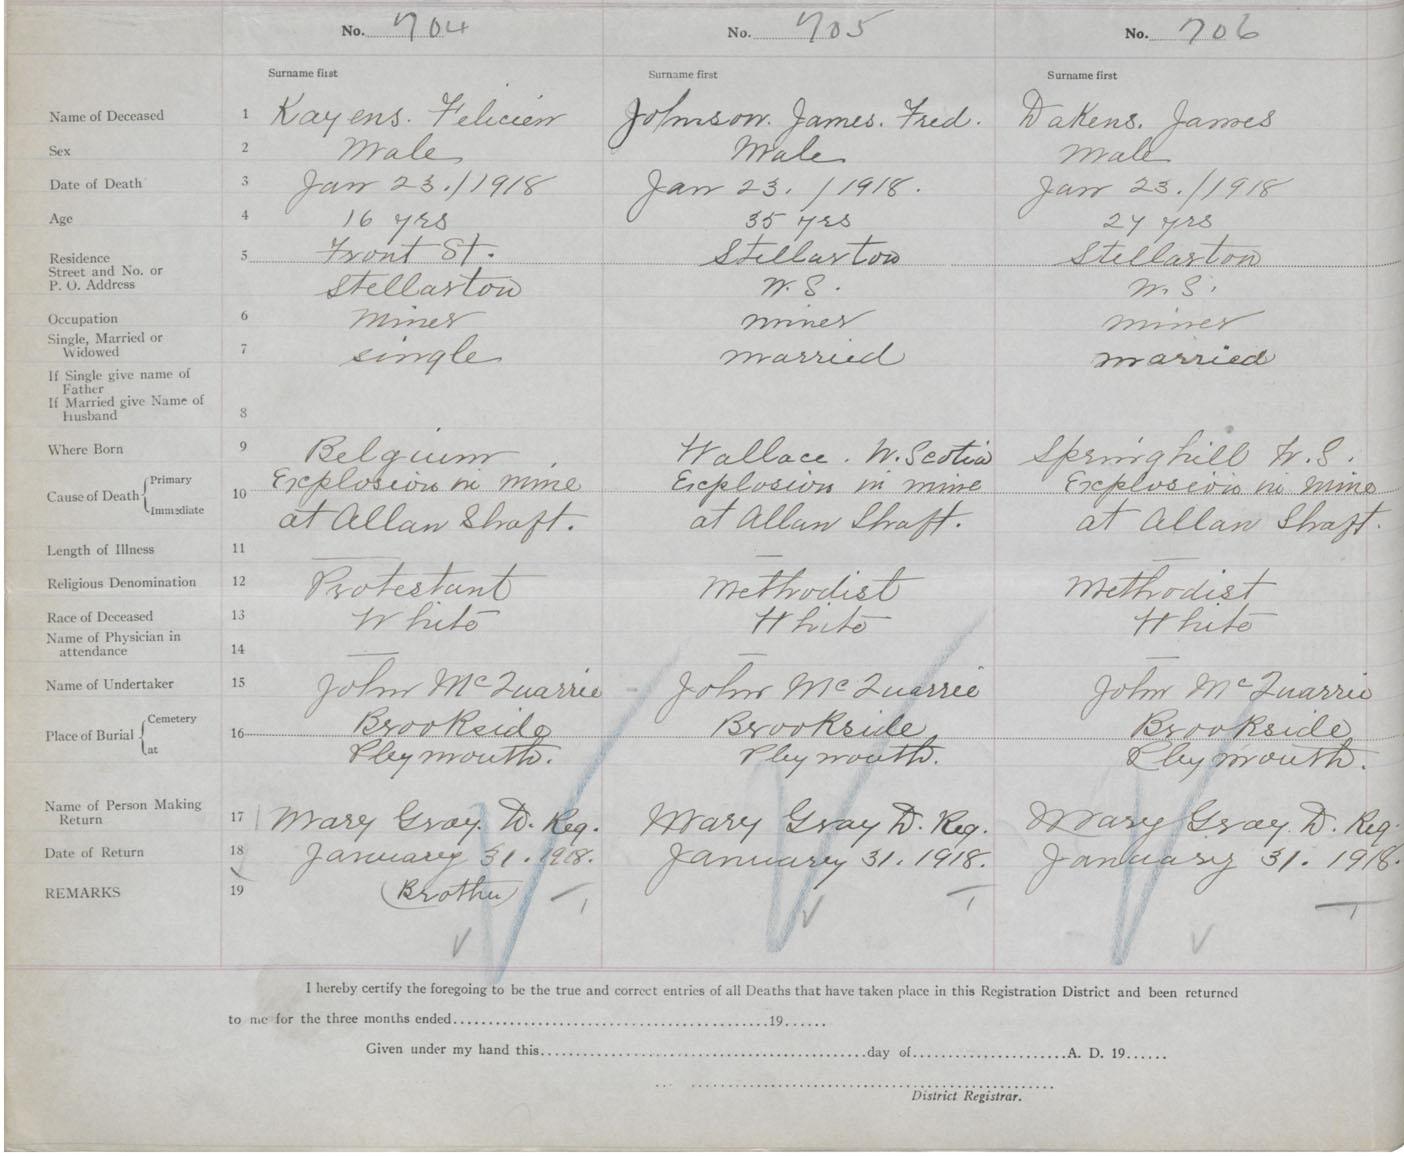 No. 704 No. 705 No. 706
Surname first Surname first Surname first
Name of Deceased 1 Kayens. Felicien Johnson. James. Fred. Dakens. James
Sex 2 Male Male Male
Date of Death 3 Jan 23./1918 Jan 23./1918. Jan 23./1918
Age 4 16 yrs 35 yrs 27 yrs
Residence
Street and No. or
P. O. Address
5 Front St. Stellarton Stellarton
Stellarton N. S. N. S.
Occupation 6 Miner miner miner
Single, Married or
Widowed
7 single married married
If Single give name of
Father
If Married give Name of
Husband
8
Where Born 9 Belgium Wallace. N. Scotia Springhill N. S.
Cause of Death { Primary
Immediate
10 Explosion in mine Explosion in mine Explosion in mine
at Allan Shaft. at Allan Shaft. at Allan Shaft.
Length of Illness 11 — — —
Religious Denomination 12 Protestant Methodist Methodist
Race of Deceased 13 White White White
Name of Physician in
attendance
14 — — —
Name of Undertaker 15 John McQuarrie John McQuarrie John McQuarrie
Place of Burial { Cemetery
at
16 Brookside Brookside Brookside
Pleymouth. Pleymouth. Pleymouth.
Name of Person Making
Return
17 Mary Gray. D. Reg. Mary Gray D. Reg. Mary Gray. D. Reg.
Date of Return 18 January 31. 1918. January 31. 1918. January 31. 1918.
REMARKS 19 (Brother)
I hereby certify the foregoing to be the true and correct entries of all Deaths that have taken place in this Registration District and been returned
to me for the three months ended 19
Given under my hand this day of A. D. 19
District Registrar.